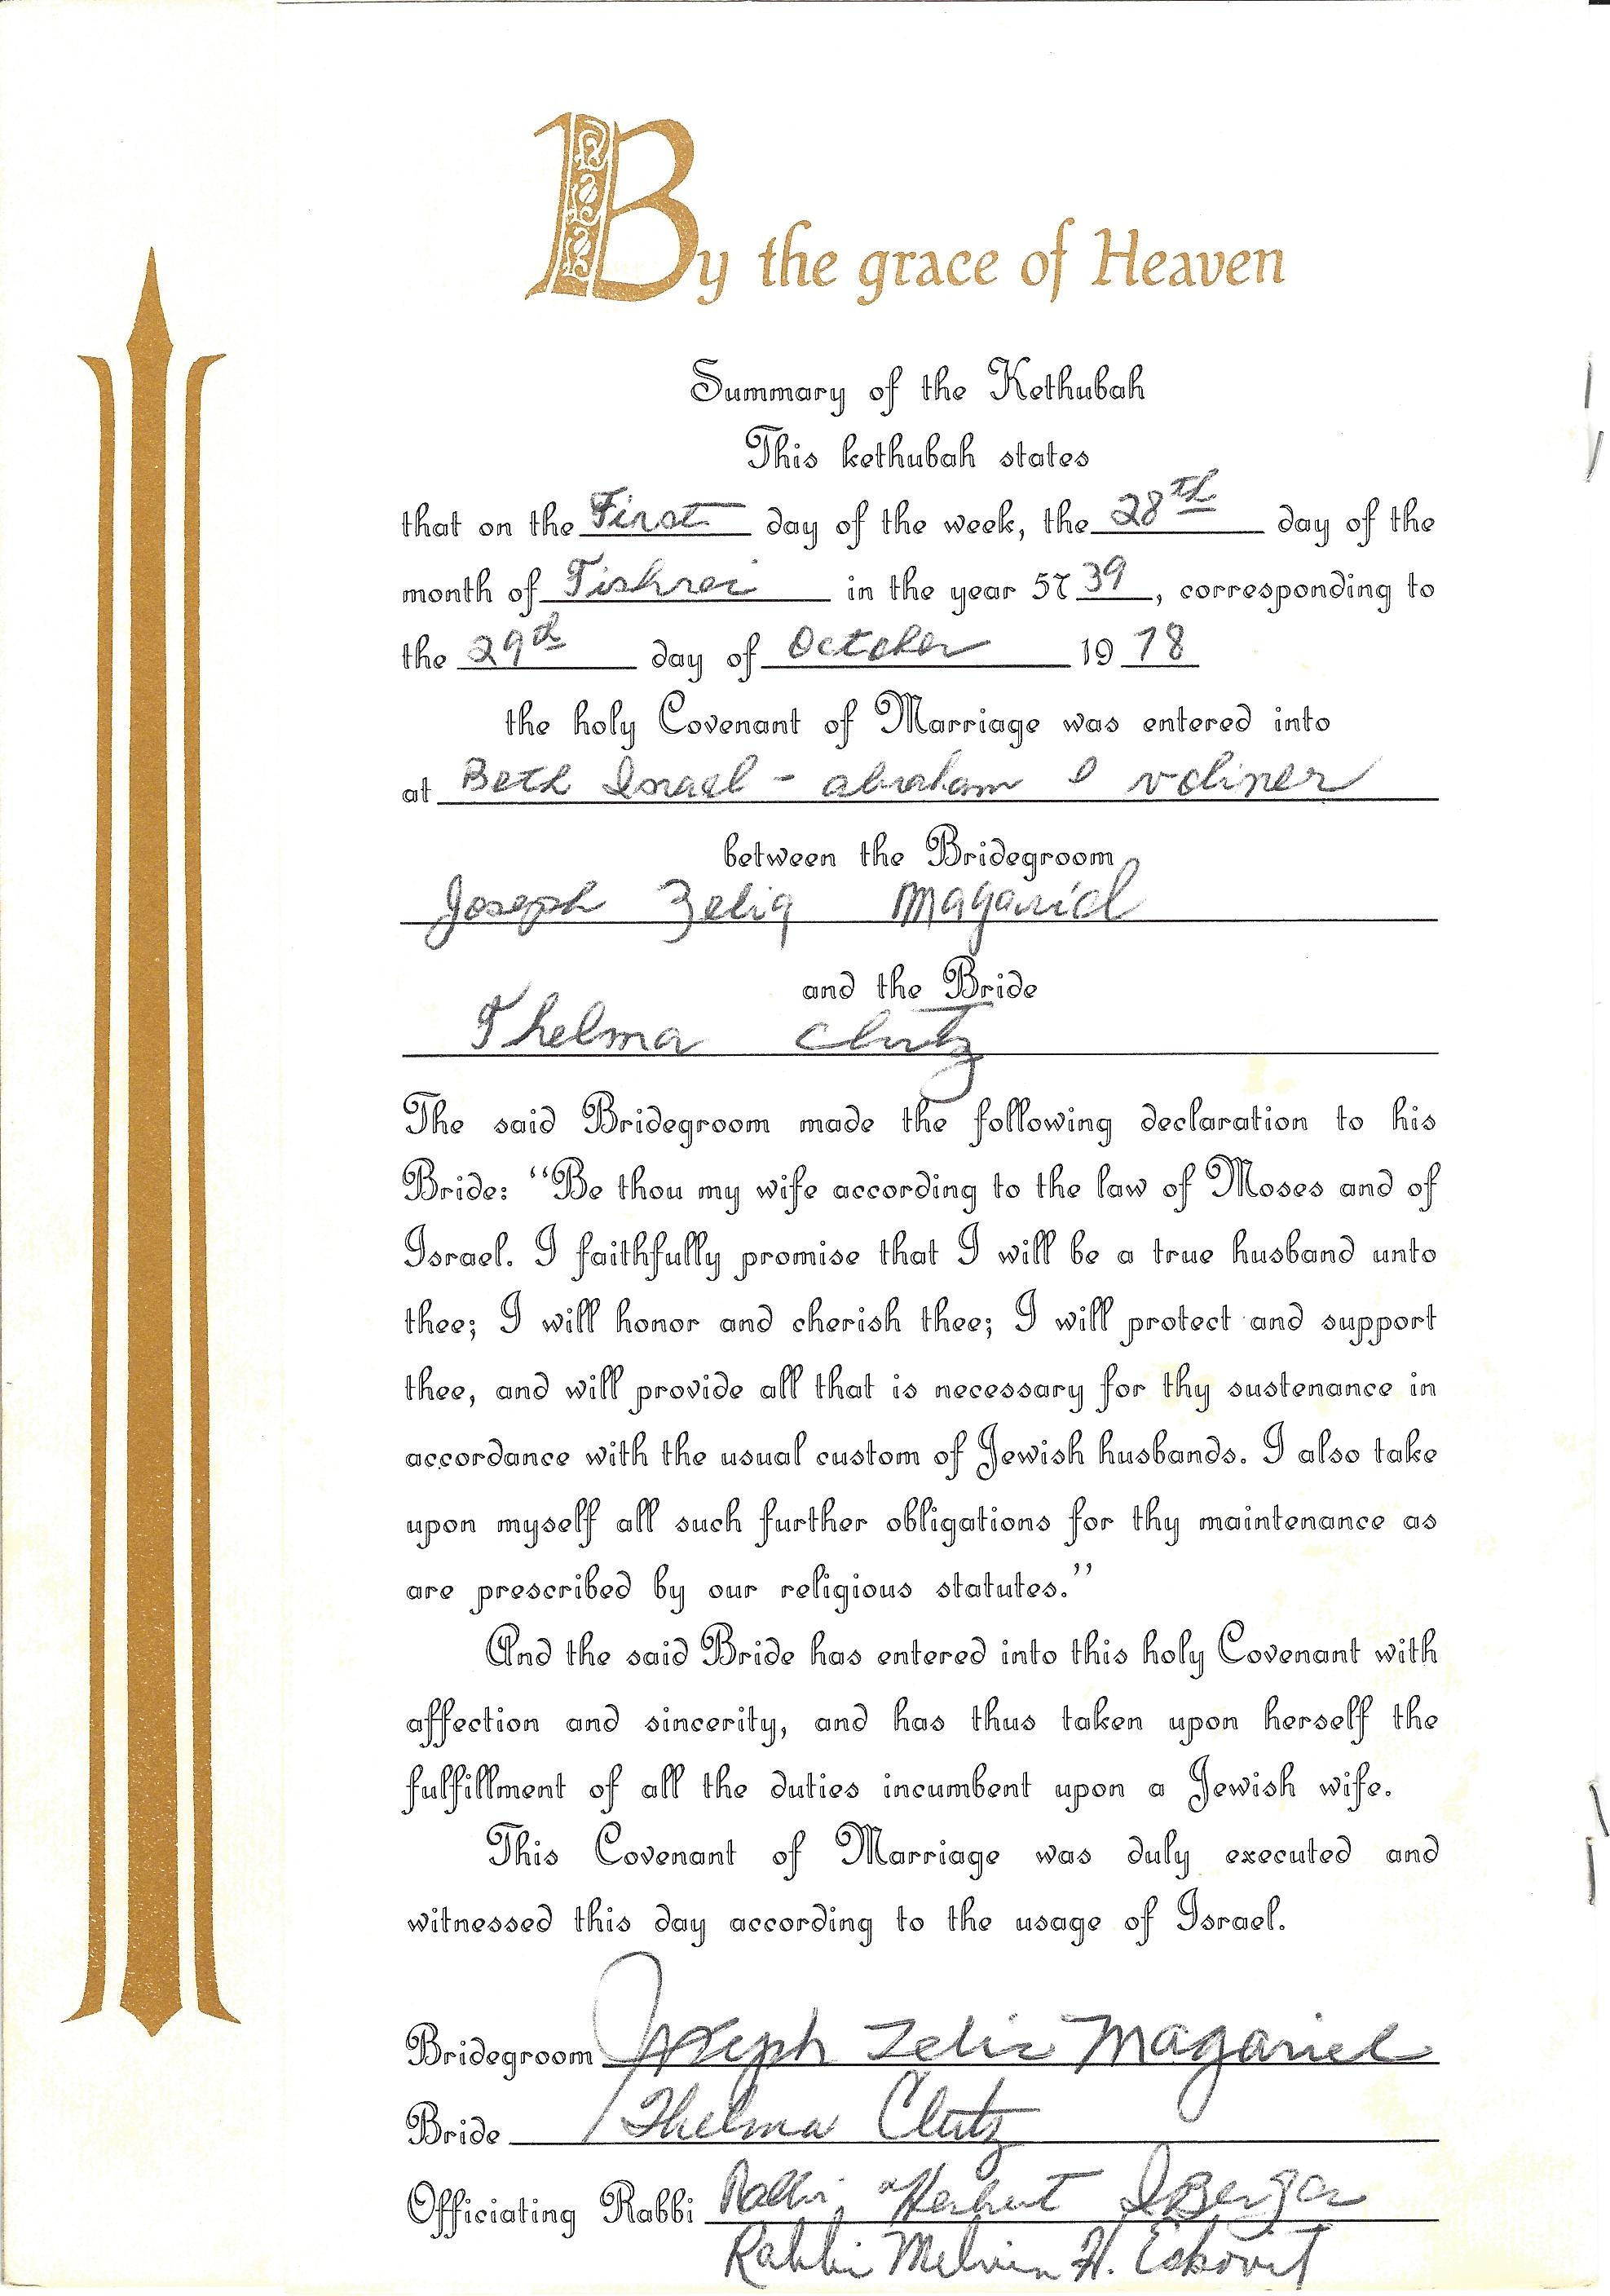 By the grace of Heaven
Summary of the Kethubah
This kethubah states
that on the First day of the week, the 28th day of the
month of Tishrei in the year 5739, corresponding to
the 29th day of October 1978
the holy Covenant of Marriage was entered into
at Beth Israel - abraham & voliner
between the Bridegroom
Joseph Zelig Magariel
and the Bride
Thelma Clutz
The said Bridegroom made the following declaration to his
Bride: “Be thou my wife according to the law of Moses and of
Israel. I faithfully promise that I will be a true husband unto
thee; I will honor and cherish thee; I will protect and support
thee, and will provide all that is necessary for thy sustenance in
accordance with the usual custom of Jewish husbands. I also take
upon myself all such further obligations for thy maintenance as
are prescribed by our religious statutes.”
And the said Bride has entered into this holy Covenant with
affection and sincerity, and has thus taken upon herself the
fulfillment of all the duties incumbent upon a Jewish wife.
This Covenant of Marriage was duly executed and
witnessed this day according to the usage of Israel.
Bridegroom Joseph Zelig Magariel
Bride Thelma Clutz
Officiating Rabbi Rabbi Herbert
Rabbi Melvin H.